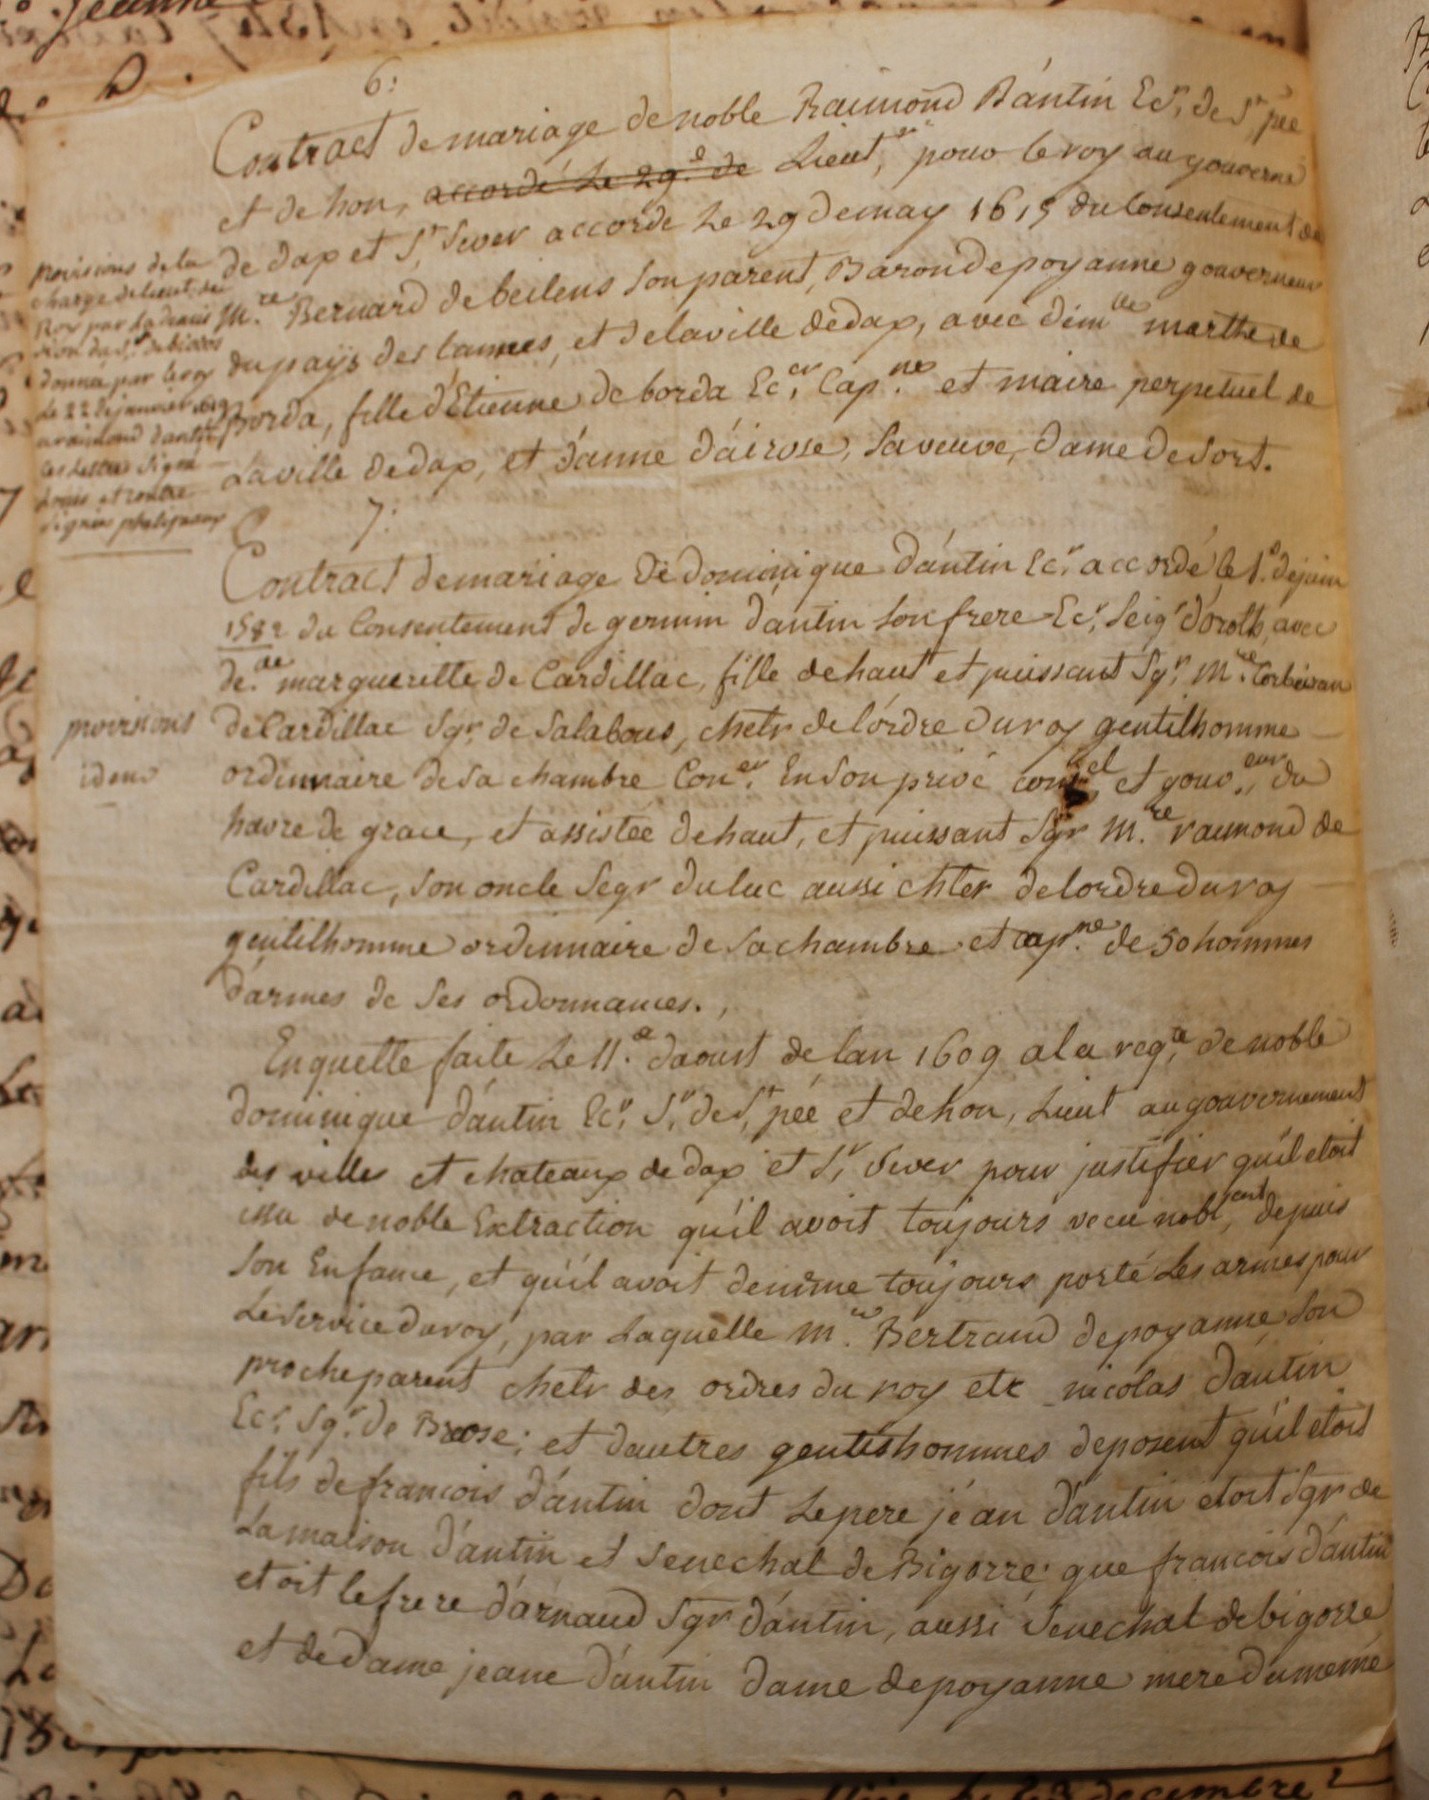 6:
Contract de mariage de noble Raimond D'antin Ecr. de St pée
et de hon, accordé Le 29.e de Lieut,nt pour le roy au gouverne
de dax et St Sever accorde Le 29 de may 1615 du Consentement de
M.re Bernard de beilens Son parent, Baron de poyanne gouverneur
du pays des lannes, et de la ville de dax, avec dem.lle marthe de
Borda, fille d'Etienne de borda Ecr. Cap.ne et maire perpetuel de
La ville de dax, et d'anne d'airose, Sa veuve, dame de Sort.
provisions de la
charge de lieut. de
Roy par la demis
sion du Sr.
donné par le roy
Le 22 de janvier
a raimond dantin
Les lettres Signé
Louis et contre
signées phelipeaux
7:
Contract de mariage de dominique d'antin Ecr. accordé le 1.e de juin
1582 du Consentement de germin d'antin Son frere Ecr. Seigr d'oroth, avec
de.lle margueritte de Cardillac, fille de haut et puissant Sgr. M.re Corbeiran
de Cardillac Sgr. de Salabous, chetr de l'ordre du roy gentilhomme
ordinnaire de Sa chambre Con.er En Son privé conseil et gouv.eur du
havre de grace, et assistée de haut, et puissant Sgr M.re raimond de
Cardillac, Son oncle Segr du luc aussi chter de lordre du roy
gentilhomme ordinnaire de Sa chambre et cap.ne de 50 hommes
d'armes de Ses ordonnances.,
provisions
idem
Enquette faite Le 11.e daoust de lan 1609 a la reqte, de noble
dominique d'antin Ecr. Sr. de St pée et de hon, Lieut au gouvernement
des villes et chateaux de dax et St Sever pour justifier qu'il etoit
issu de noble Extraction qu'il avoit toujours vecu nobl,ent depuis
Son Enfance, et qu'il avoit de même toujours porté Les armes pour
Le Service du roy, par Laquelle M.re Bertrand de poyanne Son
proche parent chetr des ordres du roy etc nicolas d'antin
Ecr. Sgr. de Brose; et dautres gentishommes deposent qu'il etoit
fils de francois d'antin dont Le pere jéan d'antin etoit Sgr de
La maison d'antin et Senechal de Bigorre: que francois d'antin
etoit le frere d'arnaud Sgr d'antin, aussi Senechal de bigorre,
et de dame jeane d'antin dame de poyanne mere du meme